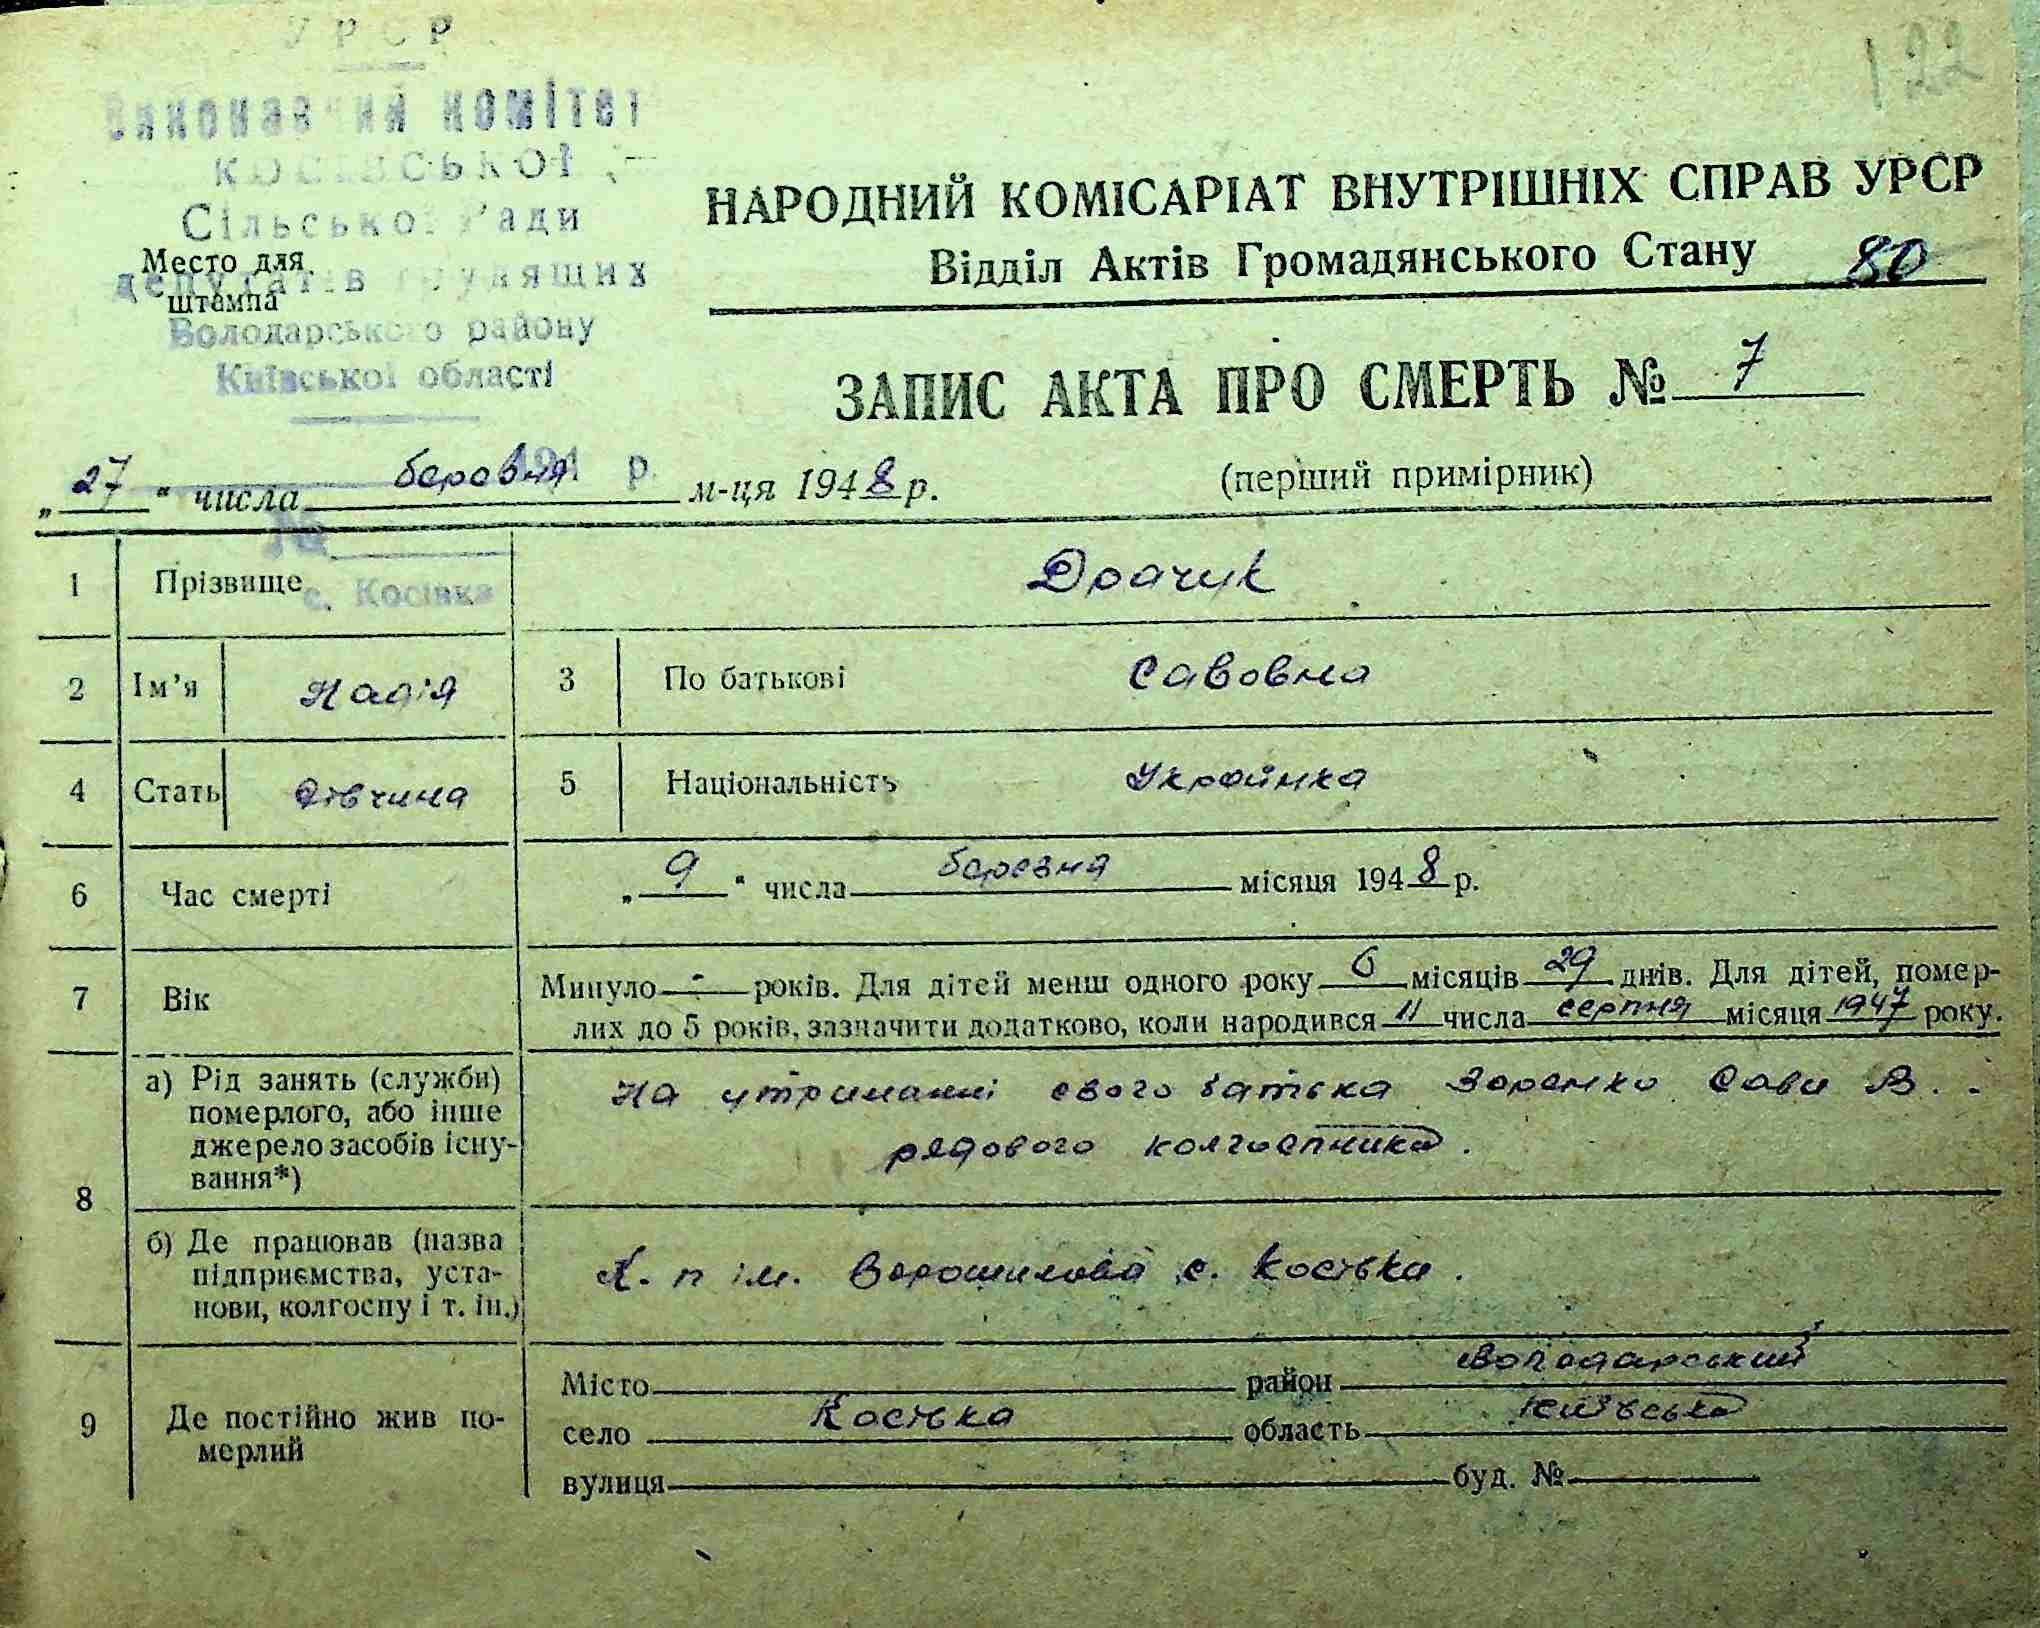 УРСР
Виконавчий комітет
КОСІВСЬКОЇ
Сільської Ради
депутатів трудящих
Володарського району
Київської області
Место для
штампа
194 р.
№
с. Косівка
122
НАРОДНИЙ КОМІСАРІАТ ВНУТРІШНІХ СПРАВ УРСР
Відділ Актів Громадянського Стану 80
ЗАПИС АКТА ПРО СМЕРТЬ № 7
„27“ числа березня м-ця 1948 р. (перший примірник)
1 Прізвище Драчук
2 Ім’я Надія 3 По батькові Савовна
4 Стать дівчина 5 Національність Українка
6 Час смерті „9“ числа березня місяця 1948 р.
7 Вік Минуло - років. Для дітей менш одного року 6 місяців 29 днів. Для дітей, помер-
лих до 5 років, зазначити додатково, коли народився 11 числа серпня місяця 1947 року.
8 а) Рід занять (служби)
померлого, або інше
джерело засобів існу-
вання*)
На утриманні свого батька Сави В.
рядового колгоспника.
б) Де працював (назва
підприємства, уста-
нови, колгоспу і т. ін.)
К-п ім. Ворошилова с. Косівка.
9 Де постійно жив по-
мерлий
Місто район Володарський
село Косівка область Київська
вулиця буд. №